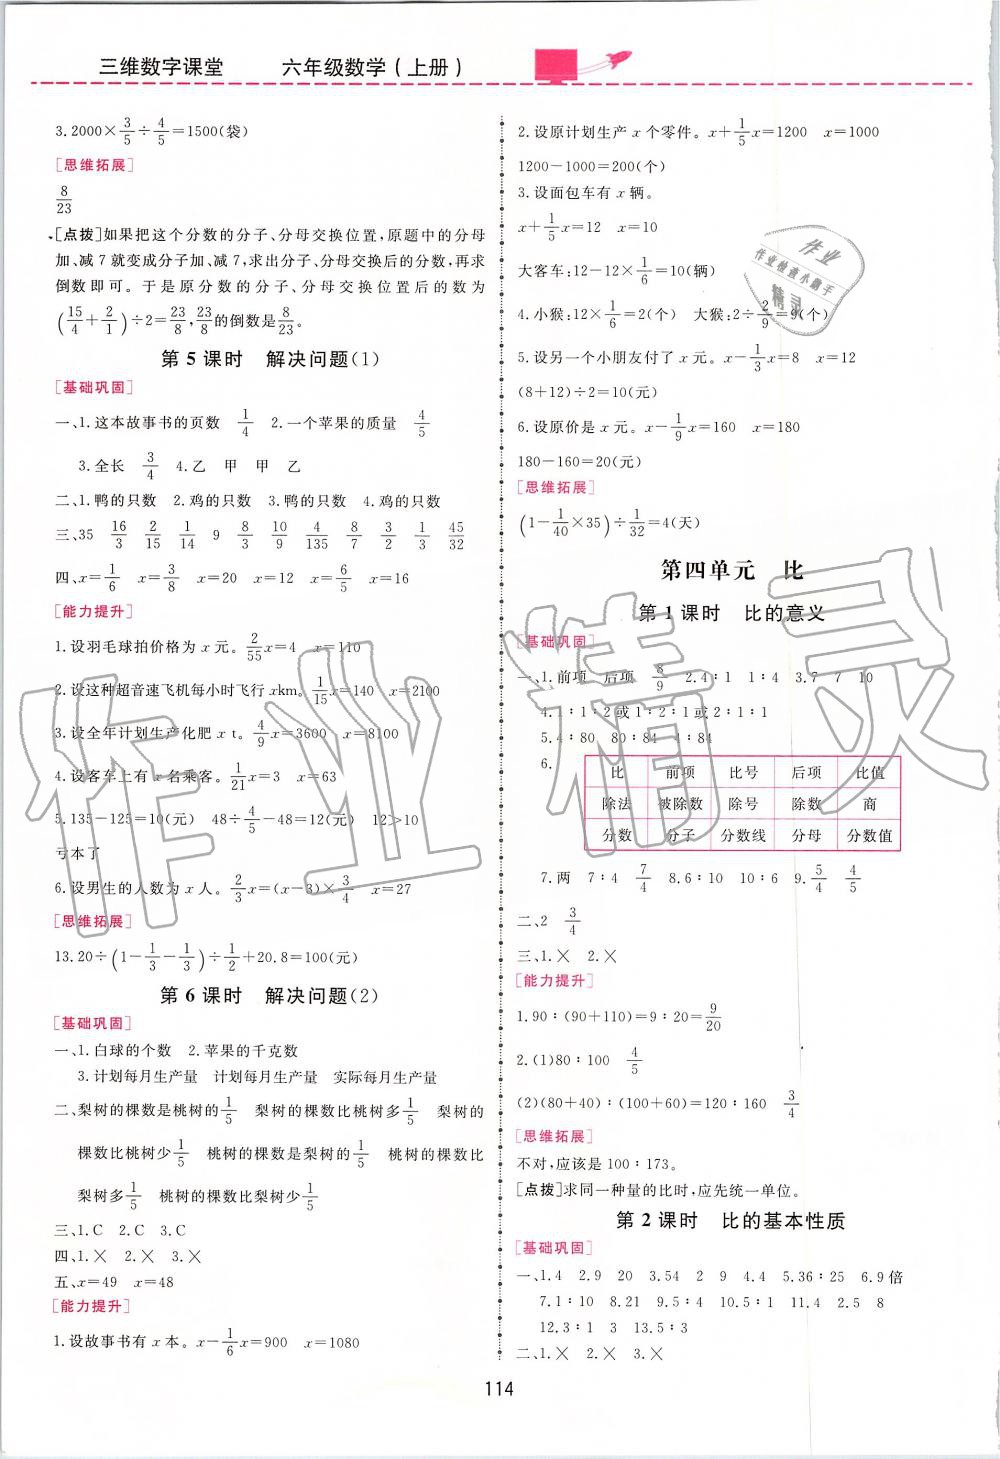 三维数字课堂　六年级数学(上册)
3.2000×3/5÷4/5=1500(袋)
[思维拓展]
8/23
[点拨]如果把这个分数的分子、分母交换位置,原题中的分母
加、减7就变成分子加、减7,求出分子、分母交换后的分数,再求
倒数即可。于是原分数的分子、分母交换位置后的数为
(15/4+2/1)÷2=23/8,23/8的倒数是8/23。
第5课时　解决问题(1)
[基础巩固]
一、1.这本故事书的页数　1/4　2.一个苹果的质量　4/5
3.全长　3/4　4.乙　甲　甲　乙
二、1.鸭的只数　2.鸡的只数　3.鸭的只数　4.鸡的只数
三、35　16/3　2/15　1/14　9　8/3　10/9　4/135　8/7　3/2　1/3　45/32
四、x=1/6　x=3/8　x=20　x=12　x=6/5　x=16
[能力提升]
1.设羽毛球拍价格为x元。2/55x=4　x=110
2.设这种超音速飞机每小时飞行xkm。1/15x=140　x=2100
3.设全年计划生产化肥xt。4/9x=3600　x=8100
4.设客车上有x名乘客。1/21x=3　x=63
5.135-125=10(元)　48÷4/5-48=12(元)　12>10
亏本了
6.设男生的人数为x人。2/3x=(x-3)×3/4　x=27
[思维拓展]
13.20÷(1-1/3-1/3)÷1/2+20.8=100(元)
第6课时　解决问题(2)
[基础巩固]
一、1.白球的个数　2.苹果的千克数
3.计划每月生产量　计划每月生产量　实际每月生产量
二、梨树的棵数是桃树的1/5　梨树的棵数比桃树多1/5　梨树的
棵数比桃树少1/5　桃树的棵数是梨树的1/5　桃树的棵数比
梨树多1/5　桃树的棵数比梨树少1/5
三、1.C　2.C　3.C
四、1.×　2.×　3.×
五、x=49　x=48
[能力提升]
1.设故事书有x本。x-1/6x=900　x=1080
2.设原计划生产x个零件。x+1/5x=1200　x=1000
1200-1000=200(个)
3.设面包车有x辆。
x+1/5x=12　x=10
大客车:12-12×1/6=10(辆)
4.小猴:12×1/6=2(个)　大猴:2÷2/9=9(个)
5.设另一个小朋友付了x元。x-1/3x=8　x=12
(8+12)÷2=10(元)
6.设原价是x元。x-1/9x=160　x=180
180-160=20(元)
[思维拓展]
(1-1/40×35)÷1/32=4(天)
第四单元　比
第1课时　比的意义
[基础巩固]
一、1.前项　后项　8/9　2.4∶1　1∶4　3.7　7　10
4.1∶1∶2或1∶2∶1或2∶1∶1
5.4∶80　80∶84　4∶84
6.
比　前项　比号　后项　比值
除法　被除数　除号　除数　商
分数　分子　分数线　分母　分数值
7.两　7∶4　7/4　8.6∶10　10∶6　9.5/4　4/5
二、2　3/4
三、1.×　2.×
[能力提升]
1.90∶(90+110)=9∶20=9/20
2.(1)80∶100　4/5
(2)(80+40)∶(100+60)=120∶160　3/4
[思维拓展]
不对,应该是100∶173。
[点拨]求同一种量的比时,应先统一单位。
第2课时　比的基本性质
[基础巩固]
一、1.4　2.9　20　3.54　2　9　4.4　5.36∶25　6.9倍
7.1∶10　8.21　9.5∶4　10.5∶1　11.4　2.5　8
12.3∶1　3　13.5∶3
二、1.×　2.×　3.×
114
作业
作业检查小助手
精灵
作业精灵